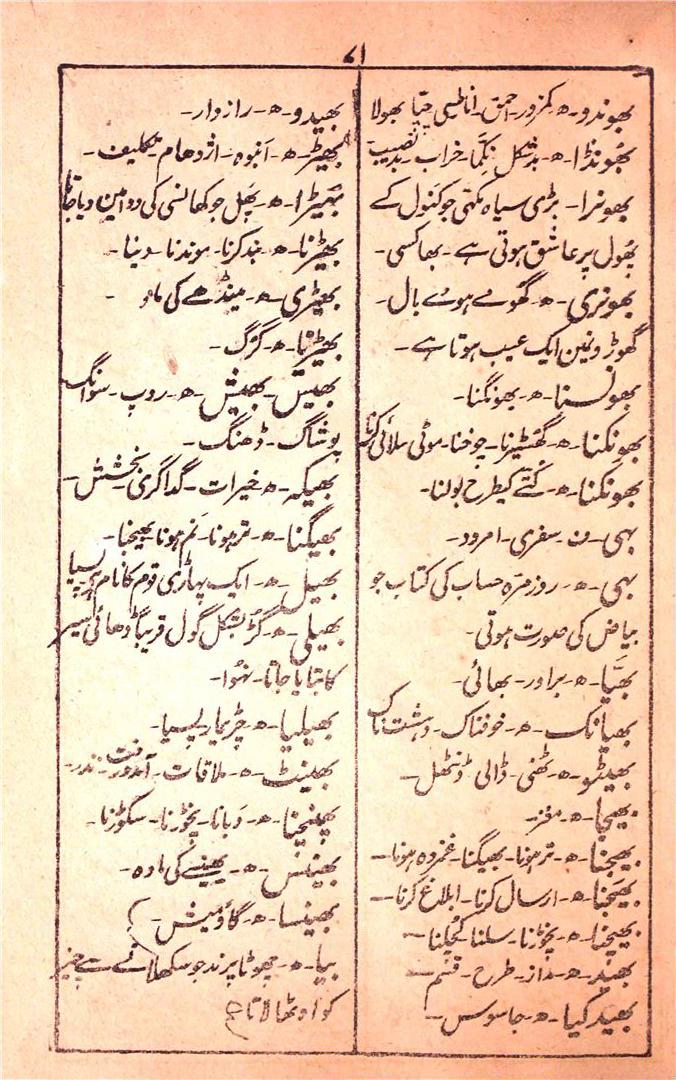 ۷۱
بھوندو۔ ھ۔ کمزور۔ احمق۔ اناطیسی چیا بھولا
بھونڈا۔ ھ۔ بدشکل نکما۔ خراب۔ بدنصیب
بھونرا۔ بڑی سیاہ مکھی جو کنول کے
پھول پر عاشق ہوتی ہے۔ بھاکسی۔
بھونری۔ ھ۔ گھومے ہوے بال۔
گھوڑونمین ایک عیب ہوتا ہے۔
بھونسنا۔ ھ۔ بھونگنا۔
بھونکنا۔ ھ۔ گھسیڑنا۔ چوخنا۔ موٹی سلائی کرنا
بھونکنا۔ ھ۔ کتے کیطرح بولنا۔
بہی۔ ف۔ سفری۔ امرود۔
بہی۔ ھ۔ روزمرہ حساب کی کتاب جو
بیاض کی صورت ہوتی۔
بھیّا۔ ھ۔ برادر۔ بھائی۔
بھیانک۔ ھ۔ خوفناک۔ دہشتناک
بھیٹو۔ ھ۔ ٹھنی۔ ڈالی ڈنٹھل۔
بھیجا۔ ھ۔ مغز۔
بھیجنا۔ ھ۔ تر ہونا۔ بھیگنا۔ غمزدہ ہونا۔
بھیجنا۔ ھ۔ ارسال کرنا۔ ابلاغ کرنا۔
بھیچنا۔ ھ۔ نچوڑنا۔ سلنا کچلنا۔
بھید۔ ھ۔ راز۔ طرح۔ قسم۔
بھید گیا۔ ھ۔ جاسوس۔
بھیدو۔ ھ۔ رازدار۔
بھیڑ۔ ھ۔ انبوہ۔ اژدھام۔ تکلیف۔
بہیڑا۔ ھ۔ پھل جو کھانسی کی دوامین دیاجاتا
بھیڑنا۔ ھ۔ بند کرنا۔ موندنا۔ دینا۔
بھیڑی۔ ھ۔ مینڈھے کی مادہ۔
بھیڑنا۔ ھ۔ گرگ۔
بھیس۔ بھیش۔ ھ۔ روپ۔ سوانگ
پوشاک۔ ڈھنگ۔
بھیکہ۔ ھ۔ خیرات۔ گداگری۔ بخشش۔
بھیگنا۔ ھ۔ تر ہونا۔ نم ہونا۔ بھیجنا۔
بھیل۔ ھ۔ ایک پہاڑی قوم کا نام ہے
بھیلی۔ ھ۔ گڑ بشکل گول قریباً ڈھائی سیر
کا بنایا جاتا۔ ہوا۔
بھیلیا۔ ھ۔ چڑیمار۔ پسیا۔
بھینٹ۔ ھ۔ ملاقات۔ آمدورفت۔ نذر۔
بھینچنا۔ ھ۔ دبانا۔ نچوڑنا۔ سکوڑنا۔
بھینس۔ ھ۔ بھینسے کی مادہ۔
بھینسا۔ ھ۔ گاؤمیش۔
بیا۔ ھ۔ چھوٹا پرند جو سکھلانے سے چیز
کو اوٹھالاتا